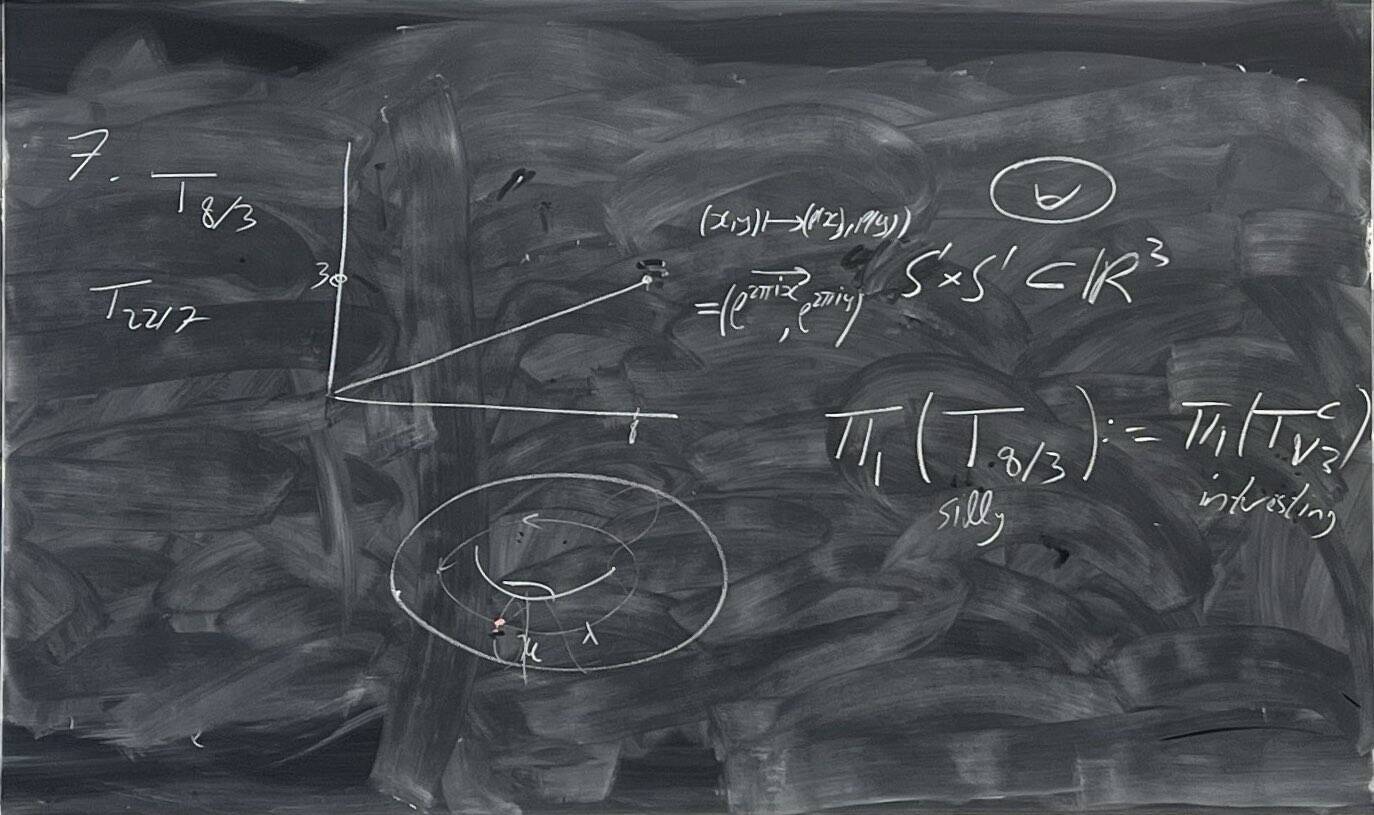 7. T_{8/3}
T_{22/7}
3
8
(x,y) ↦ (p(x), p(y))
= (e^{2πix}, e^{2πiy})
S¹×S¹ ⊂ ℝ³
π₁(T_{8/3}) := π₁(T^c_{8/3})
silly interesting
λ
μ